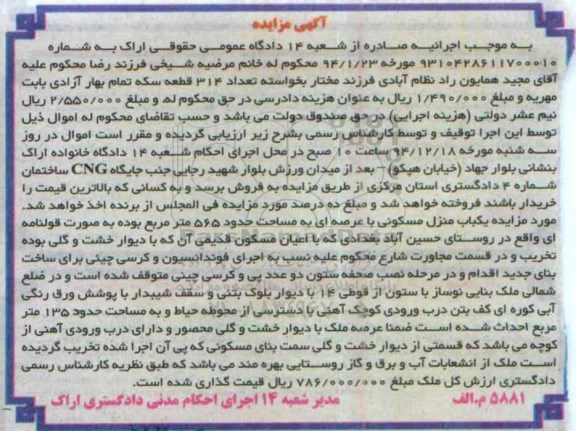 آگهی مزایده
به موجب اجرائیه صادره از شعبه ۱۴ دادگاه عمومی حقوقی اراک به شماره
۹۳۱۰۴۲۸۶۱۱۷۰۰۰۱۰ مورخه ۹۴/۱/۲۳ محکوم له خانم مرضیه شیخی فرزند رضا محکوم علیه
آقای مجید همایون راد نظام آبادی فرزند مختار بخواسته تعداد ۳۱۴ قطعه سکه تمام بهار آزادی بابت
مهریه و مبلغ ۱/۴۹۰/۰۰۰ ریال به عنوان هزینه دادرسی در حق محکوم له و مبلغ ۲/۵۵۰/۰۰۰ ریال
نیم عشر دولتی (هزینه اجرایی) در حق صندوق دولت می باشد و حسب تقاضای محکوم له اموال ذیل
توسط این اجرا توقیف و توسط کارشناس رسمی بشرح زیر ارزیابی گردیده و مقرر است اموال در روز
سه شنبه مورخه ۹۴/۱۲/۱۸ ساعت ۱۰ صبح در محل اجرای احکام شعبه ۱۴ دادگاه خانواده اراک
بنشانی بلوار جهاد (خیابان هپکو) - بعد از میدان ورزش بلوار شهید رجایی جنب جایگاه CNG ساختمان
شماره ۴ دادگستری استان مرکزی از طریق مزایده به فروش برسد و به کسانی که بالاترین قیمت را
خریدار باشند فروخته خواهد شد و مبلغ ده درصد مورد مزایده فی المجلس از برنده اخذ خواهد شد.
مورد مزایده یکباب منزل مسکونی با عرصه ای به مساحت حدود ۵۶۵ متر مربع بوده به صورت قولنامه
ای واقع در روستای حسین آباد بغدادی که با اعیان مسکون قدیمی آن که با دیوار خشت و گلی بوده
تخریب و در قسمت مجاورت شارع محکوم علیه نسبت به اجرای فونداسیون و کرسی چینی برای ساخت
بنای جدید اقدام و در مرحله نصب صفحه ستون دو عدد پی و کرسی چینی متوقف شده است و در ضلع
شمالی ملک بنایی نوساز با ستون از قوطی ۱۴ با دیوار بلوک بتنی و سقف شیبدار با پوشش ورق رنگی
آبی کوره ای کف بتن درب ورودی کوچک آهنی با دسترسی از محوطه حیاط و به مساحت حدود ۱۳۵ متر
مربع احداث شده است ضمنا عرصه ملک با دیوار خشت و گلی محصور و دارای درب ورودی آهنی از
کوچه می باشد که قسمتی از دیوار خشت و گلی سمت بنای مسکونی که پی آن اجرا شده تخریب گردیده
است ملک از انشعابات آب و برق و گاز روستایی بهره مند می باشد که طبق نظریه کارشناس رسمی
دادگستری ارزش کل ملک مبلغ ۷۸۶/۰۰۰/۰۰۰ ریال قیمت گذاری شده است.
۵۸۸۱ م.الف مدیر شعبه ۱۴ اجرای احکام مدنی دادگستری اراک